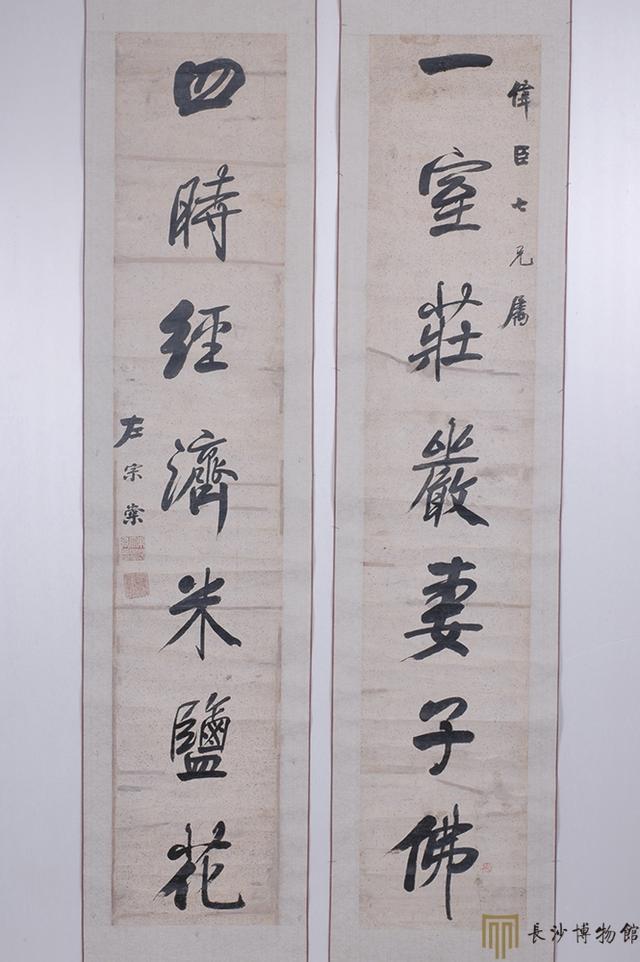 偉臣七兄属
一室莊嚴妻子佛
四時經濟米鹽花
左宗棠
長沙博物館